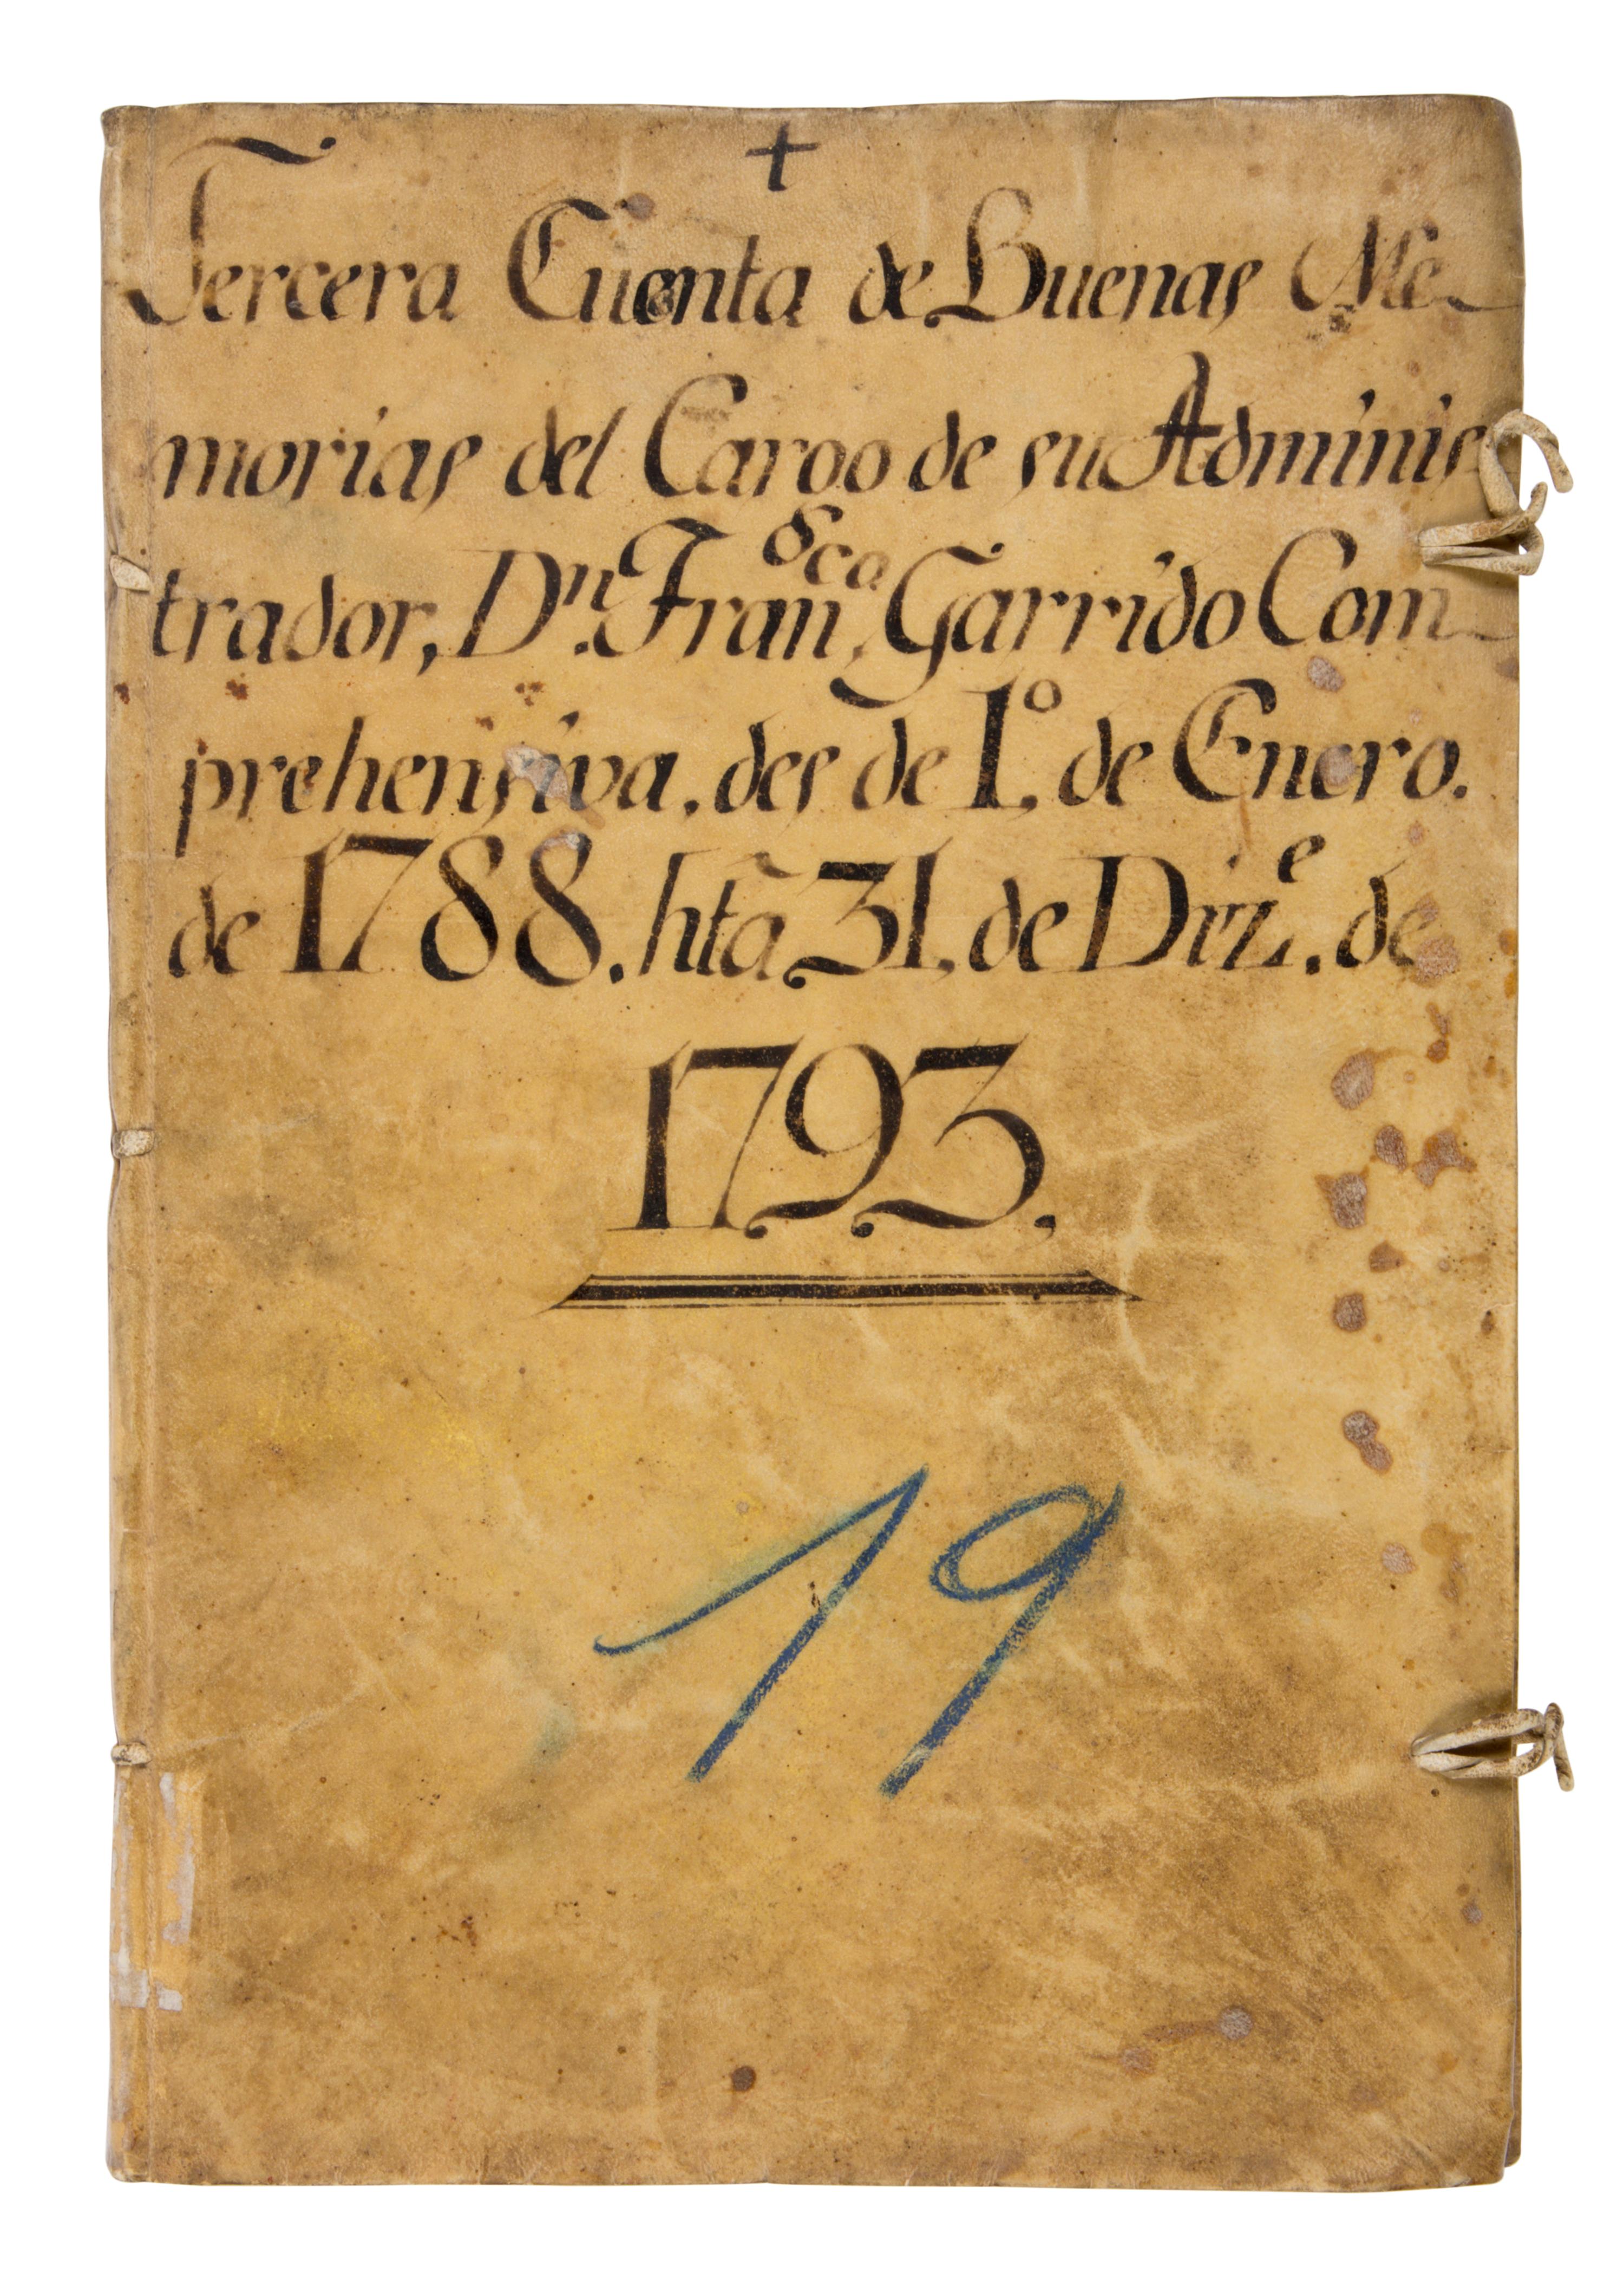 +
Tercera Cuenta de Buenas Me-
morias del Cargo de su Adminis-
trador, Dn. Franca. Garrido Com-
prehensiva. des de 1o. de Enero.
de 1788. htã 31, de Dize. de
1793.
19